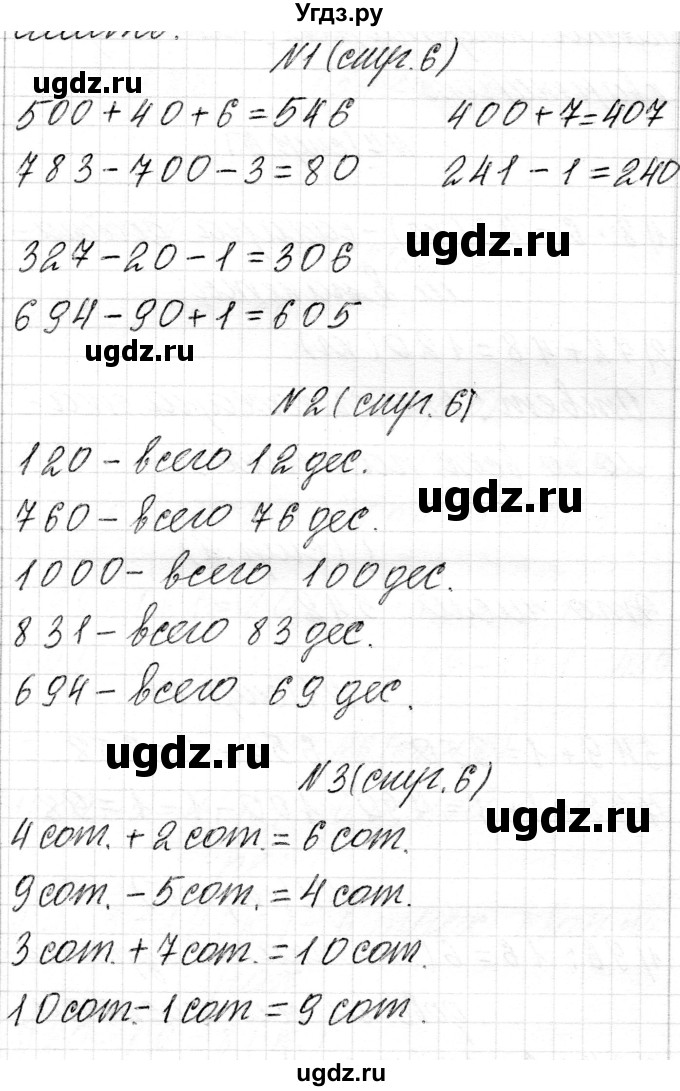 Угдз.ру
№1 (стр. 6)
ugdz.ru
500 + 40 + 6 = 546 400 + 7 = 407
783 - 700 - 3 = 80 241 - 1 = 240
ugdz.ru
327 - 20 - 1 = 306
694 - 90 + 1 = 605
ugdz.ru
№2 (стр. 6)
120 - всего 12 дес.
ugdz.ru
760 - всего 76 дес.
1000 - всего 100 дес.
831 - всего 83 дес.
694 - всего 69 дес.
ugdz.ru
№3 (стр. 6)
ugdz.ru
4 сот. + 2 сот. = 6 сот.
9 сот. - 5 сот. = 4 сот.
3 сот. + 7 сот. = 10 сот.
10 сот. - 1 сот = 9 сот.
ugdz.ru